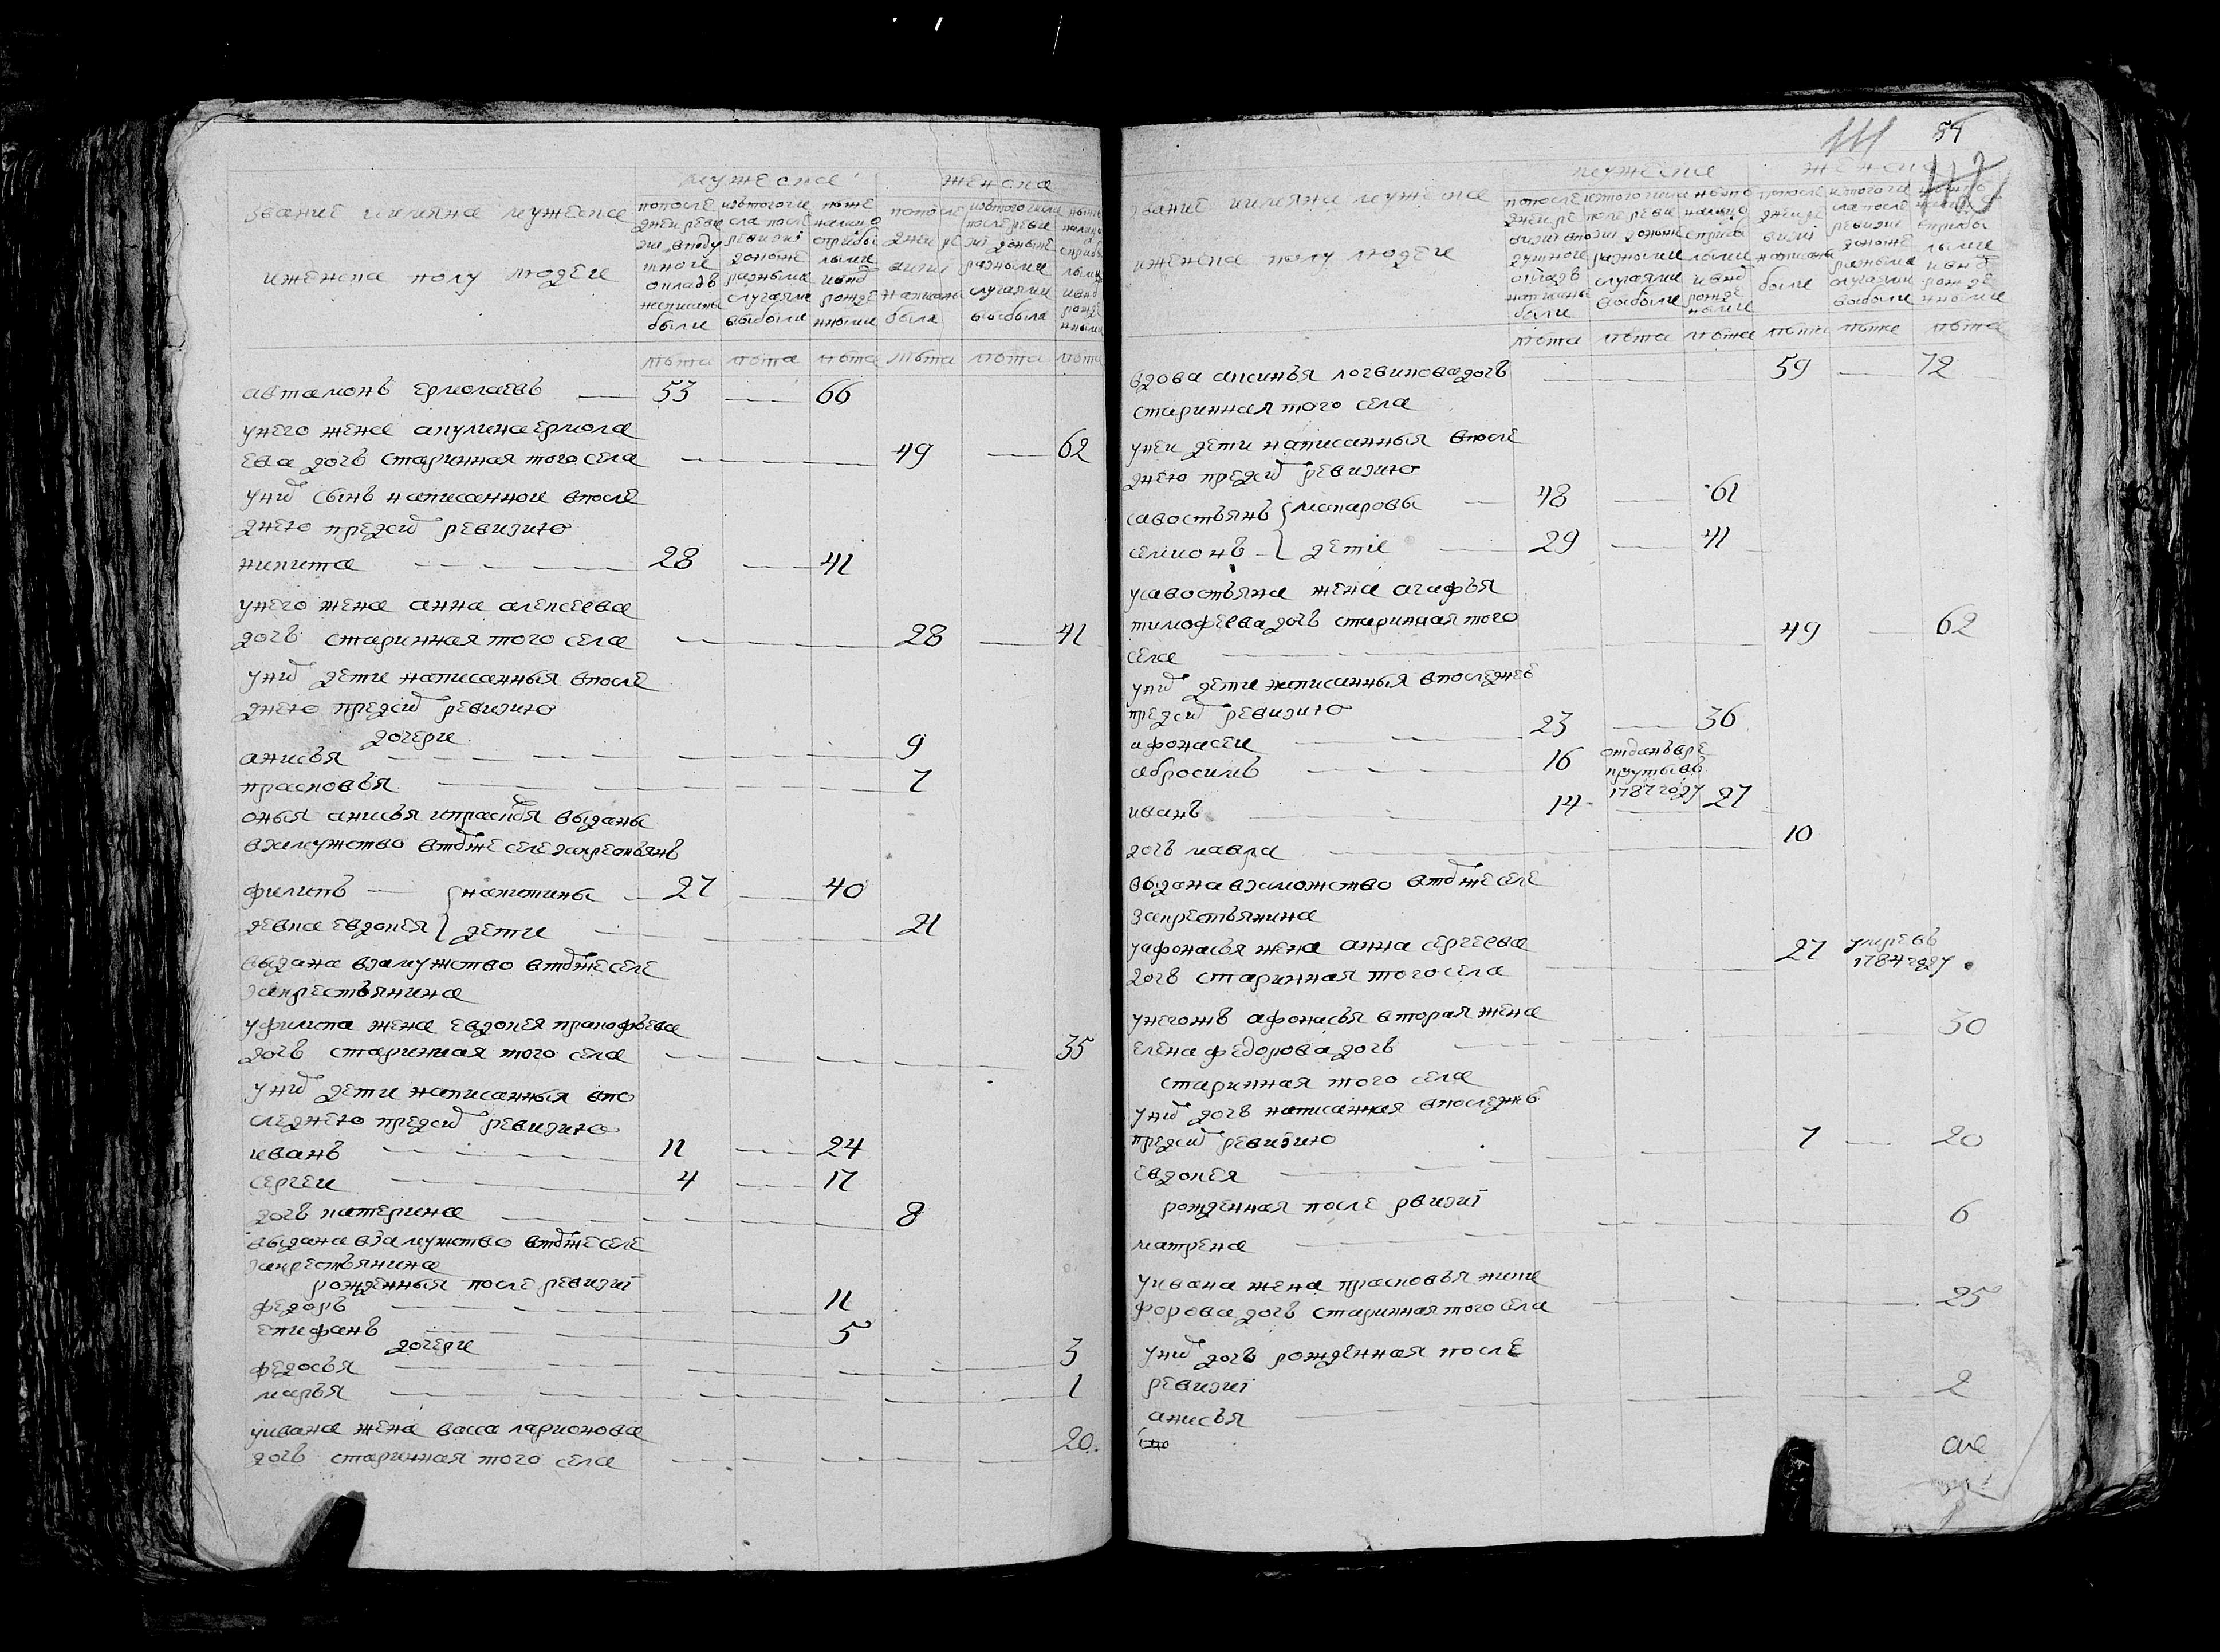 мужеска
женска
звание иимяна мужеска
иженска полу людеи
попосле
днеи реви
зиі вподу
шнои
окладъ
написаны
были
изтогочи
сла после
ревизиі
доныне
разными
случаями
выбыли
ныне
налицо
сприбы
лыми
ивнов
рожде
нными
попосле
днеи ре
визиі
написаны
была
изтогочисла
послереви
зиі доныне
разными
случаями
выбыла
лета лета лета лета лета лета
автамонъ ермолаевъ 53 66
унего жена акулина ермола
ева дочь стариннаятого села 49 62
уних сынъ написаннои впосле
днею предсих ревизию
никита 28 41
унего жена анна алексеева
дочь стариннаятого села 28 41
уних дети написанныя впосле
днею предсих ревизию
дочери
анисья 9
прасковья 7
оныя анисья ипрасковья выданы
взамужство втомжеселезакрестьянъ
филипъ никитины 27 40
девка евдокея дети 21
выдана взамужство втомжеселе
закрестьянина
уфилипа жена евдокея пракофьева
дочь старинная того села 35
уних дети написанныя впо
следнею предсих ревизию
иванъ 11 24
сергеи 4 17
дочь катерина 8
выдана взамужство втомжеселе
закрестьянина
рожденныя после ревизиі
федоръ 11
епифанъ 5
дочери
федосья 3
марья 1
уивана жена васса ларионова
дочь старинная того села 20
54
мужеска
звание иимяна мужеска
иженска полу людеи
попосле
днеи ре
визиі впо
душнои
окладъ
написаны
были
изтогочисла
после реви
зиі доныне
разными
случаями
выбыли
ныне
налицо
сприбы
лыми
ивнов
рожде
ными
попосле
днеи ре
визиі
написаны
были
изтогочи
сла после
ревизиі
доныне
разными
случаями
выбыли
сприбы
лыми
ивнов
рожде
нными
лета лета лета лета лета лета
вдова аксинья логвиновадочь 59 72
стариннаятого села
унеи дети написанныя впосле
днею предсих ревизию
савостьянъ макаровы 48 61
семионъ дети 29 41
усавостьяна жена агафья
тимофеевадочь стариннаятого
села 49 62
уних дети написанныя впоследнею
предсих ревизию
афонасеи 23 36
абросимъ 16 отданъвре
круты въ
1787 году
иванъ 14 27
дочь мавра 10
выданавзамужство втомжеселе
закрестьянина
уафонасья жена анна сергеева
дочь стариннаятогосела 27 умре въ
1784 году
унегожъ афонасья вторая жена
елена федорова дочь 30
старинная того села
уних дочь написанная впоследнею
предсих ревизию 7 20
евдокея
рожденная после рвизиі
матрена 6
уивана жена прасковья ники
форова дочь стариннаятого села 25
уних дочь рожденная после
ревизиі 2
анисья